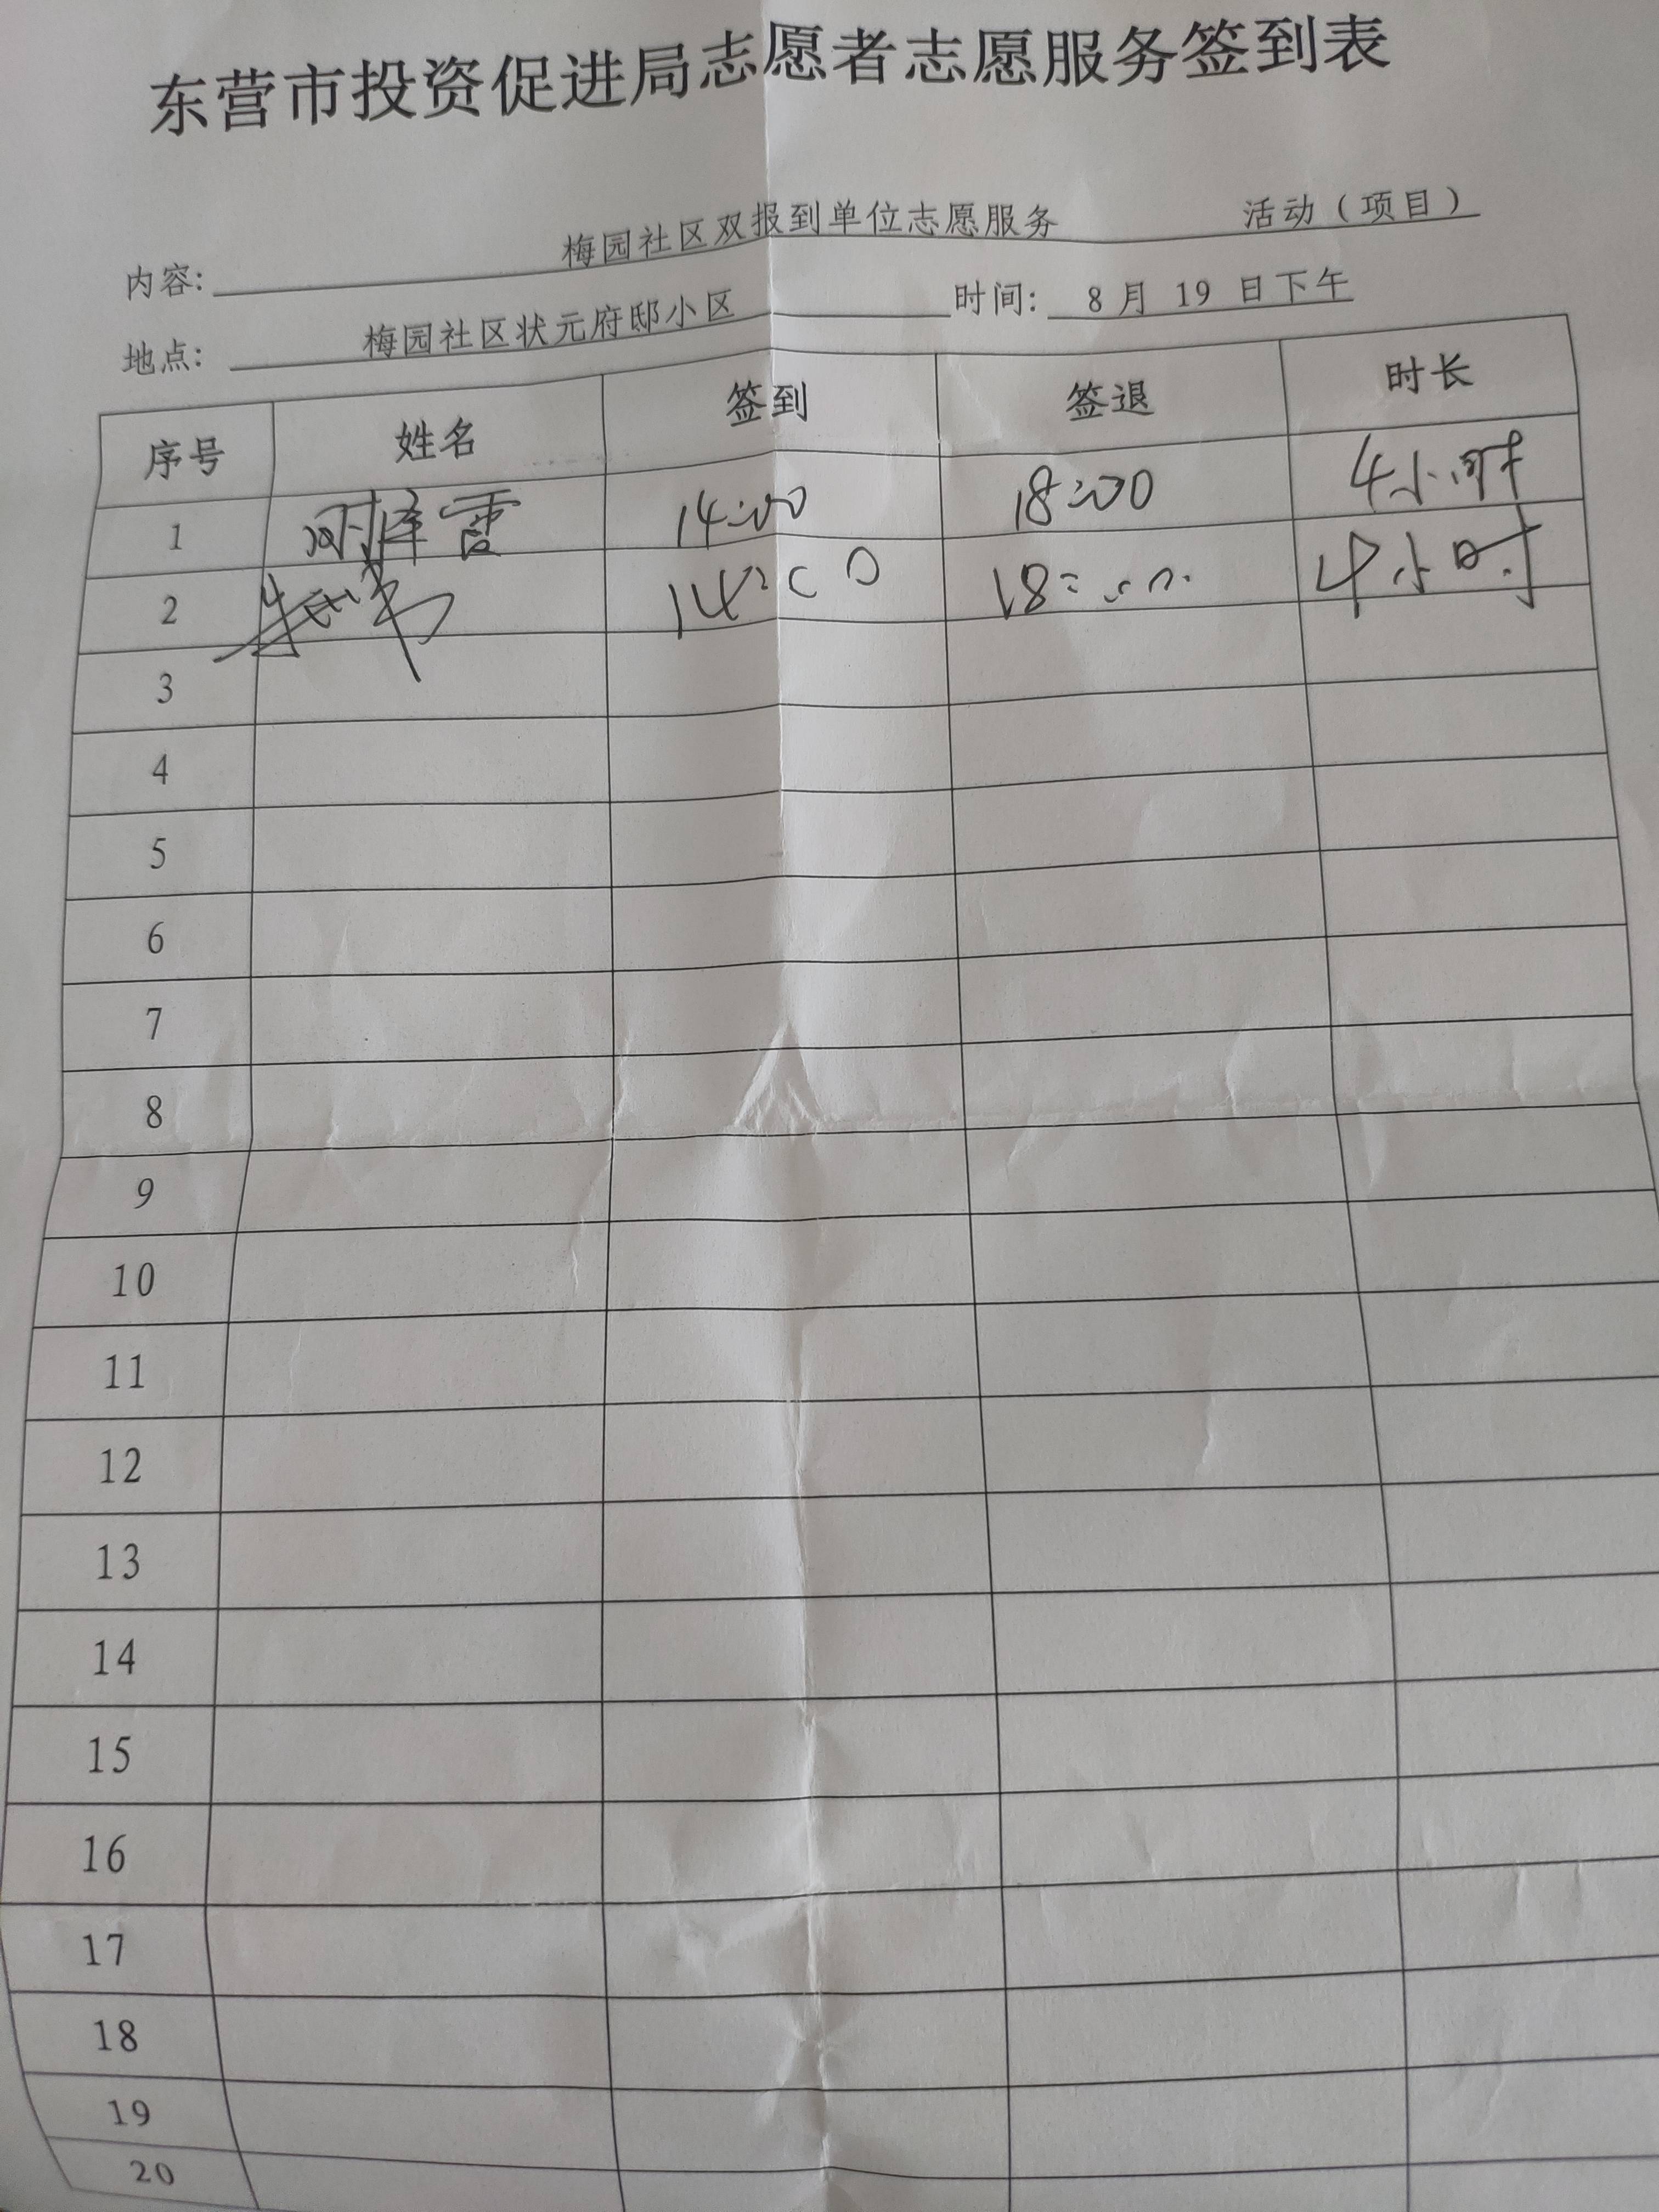 东营市投资促进局志愿者志愿服务签到表
内容: 梅园社区双报到单位志愿服务 活动（项目）
地点: 梅园社区状元府邸小区 时间: 8 月 19 日下午
序号 姓名 签到 签退 时长
1 14:00 18:00 4小时
2 14:00 18:00 4小时
3
4
5
6
7
8
9
10
11
12
13
14
15
16
17
18
19
20